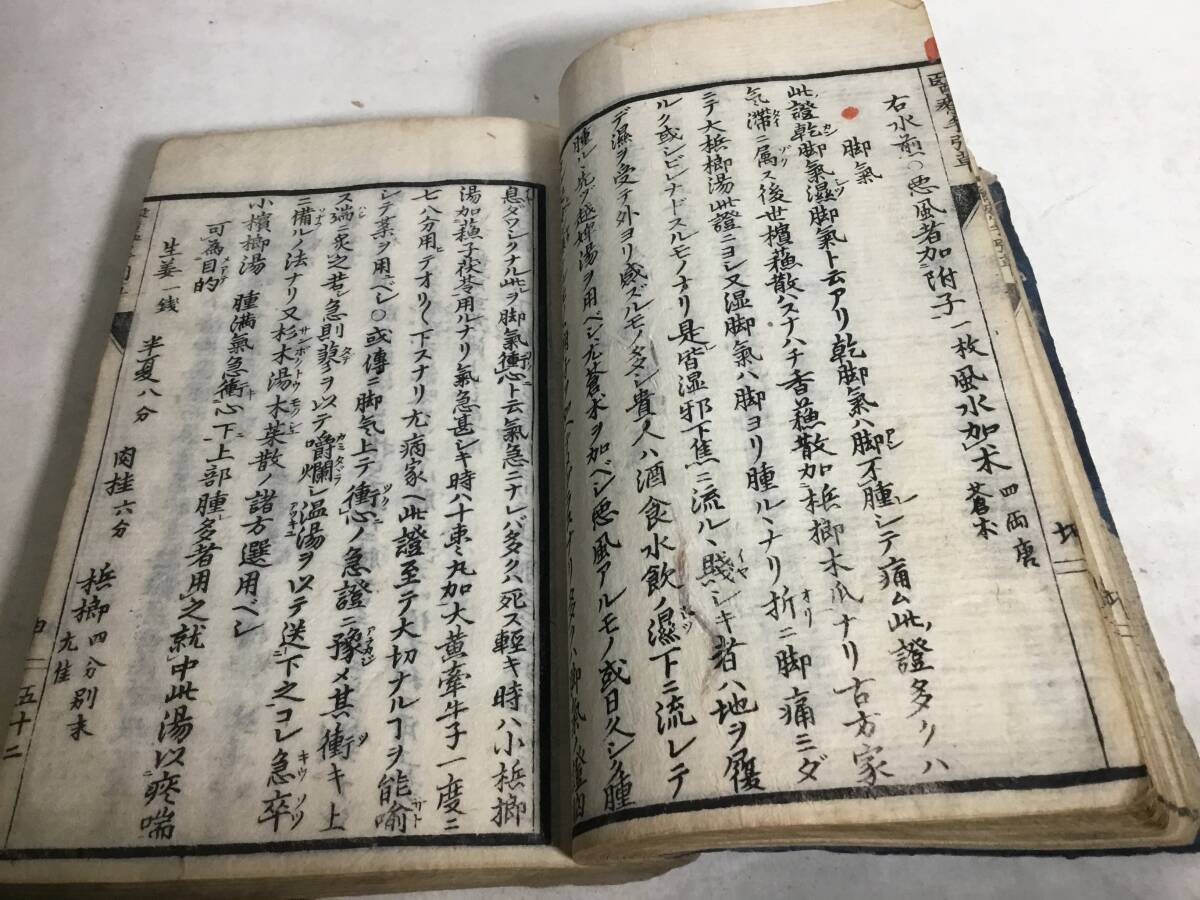 右水煎○悪風者加附子一枚風水加朮四両唐
蒼朮
脚氣
此證乾脚氣濕脚氣ト云アリ乾脚氣ハ脚不腫シテ痛ム此證多クハ
氣滯ニ属ス後世檳蘓散ハスナハチ香蘓散加梹榔木瓜ナリ古方家
ニテ大梹榔湯此證ニヨシ又湿脚氣ハ脚ヨリ腫ルヽナリ折ニ脚痛ミダ
ルク或シビレナドスルモノナリ是皆湿邪下焦ニ流ル賤シキ者ハ地ヲ履
デ濕ヲ受テ外ヨリ感ズルモノタタシ貴人ハ酒食水飲ノ濕下ニ流レテ
腫ルヽ先ヅ越婢湯ヲ用ベシ尤蒼朮ヲ加ベシ悪風アルモノ或日久シク腫
息ダワシクナル此ヲ脚氣衝心ト云氣急ニナレバ多クハ死ス輕キ時ハ小梹榔
湯加蘓子茯苓用ルナリ氣急甚シキ時ハ十棗丸加大黄牽牛子一度ニ
七八分用ヒテオリ〱下スナリ尤病家ヘ此證至テ大切ナルヿヲ能喻
シテ薬ヲ用ベシ○或傳ニ脚气上テ衝心ノ急證ニ豫メ其衝キ上
ス端ニ灸之若シ急則蓼ヲ以テ嚼爛シ温湯ヲ以テ送下之コレ急卒
ニ備ルノ法ナリ又杉木湯木葉散ノ諸方選用ベシ
小檳榔湯 腫満氣急衝心下上部腫多者用之就中此湯以痰喘
可為目的
生姜一銭 半夏八分 肉桂六分 梹榔四分別末
尤佳
五十二